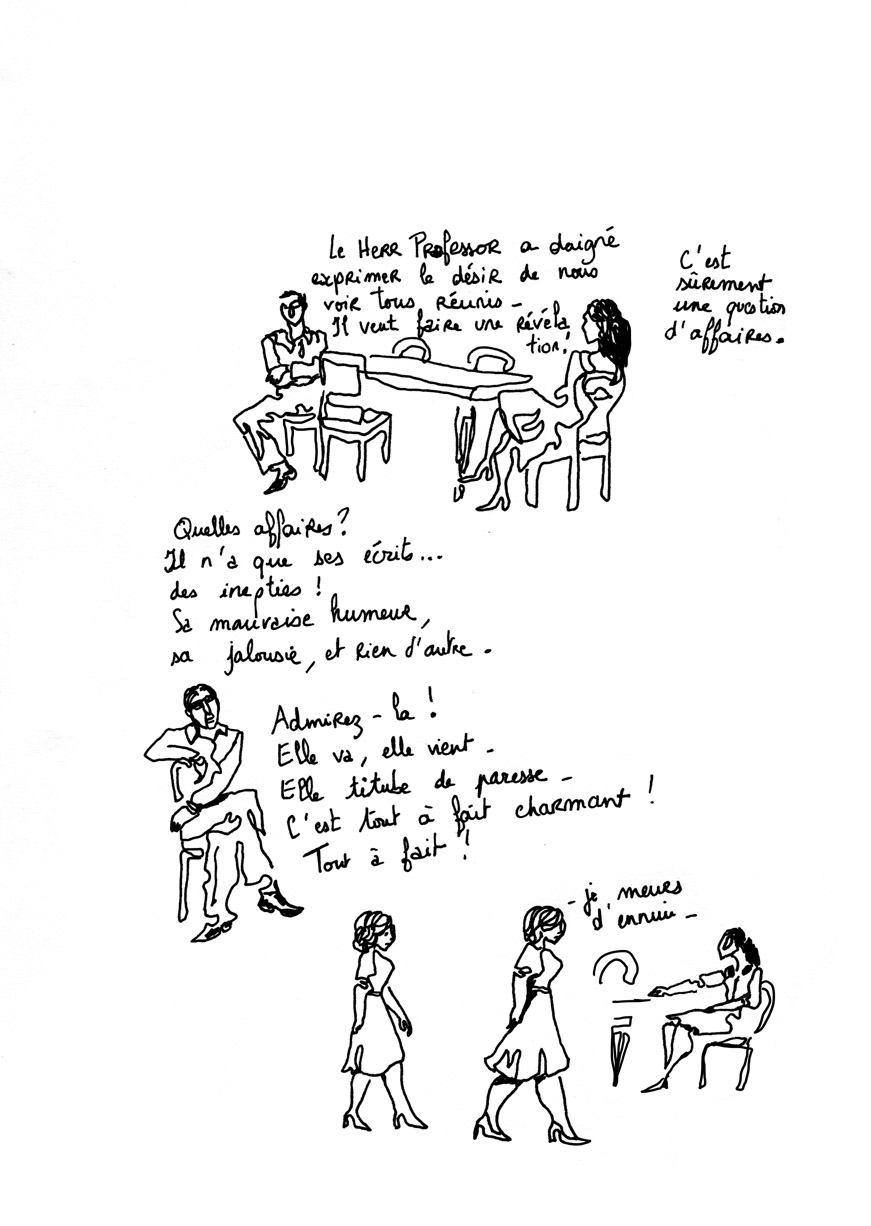 Le Herr Professor a daigné
exprimer le désir de nous
voir tous réunis -
Il veut faire une révéla
tion!
C'est
sûrement
une question
d'affaires.
Quelles affaires?
Il n'a que ses écrits...
des inepties !
Sa mauvaise humeur,
sa jalousie, et rien d'autre -
Admirez-la !
Elle va, elle vient -
Elle titube de paresse -
C'est tout à fait charmant !
Tout à fait !
- je meurs
d'ennui -